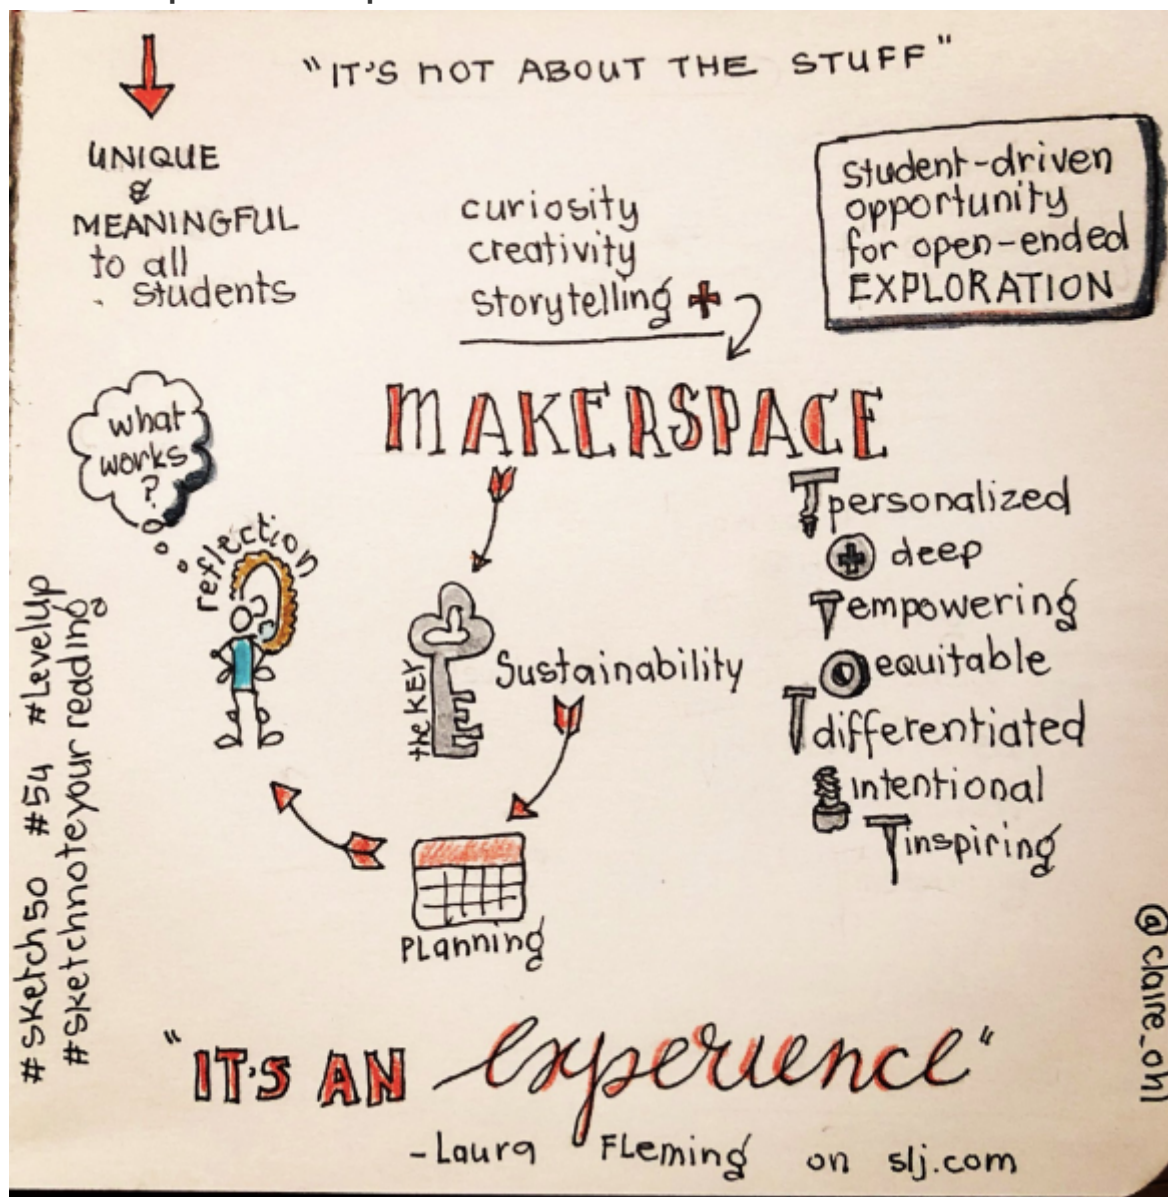 "IT'S NOT ABOUT THE STUFF"
UNIQUE
&
MEANINGFUL
to all
students
curiosity
creativity
storytelling +
student-driven
opportunity
for open-ended
EXPLORATION
MAKERSPACE
what
works
?
reflection
the KEY
Sustainability
personalized
deep
empowering
equitable
differentiated
intentional
inspiring
PLanning
#sketch50 #54 #LevelUp
#sketchnoteyourreading
@claire_ohl
"IT'S AN experience"
-Laura Fleming on slj.com